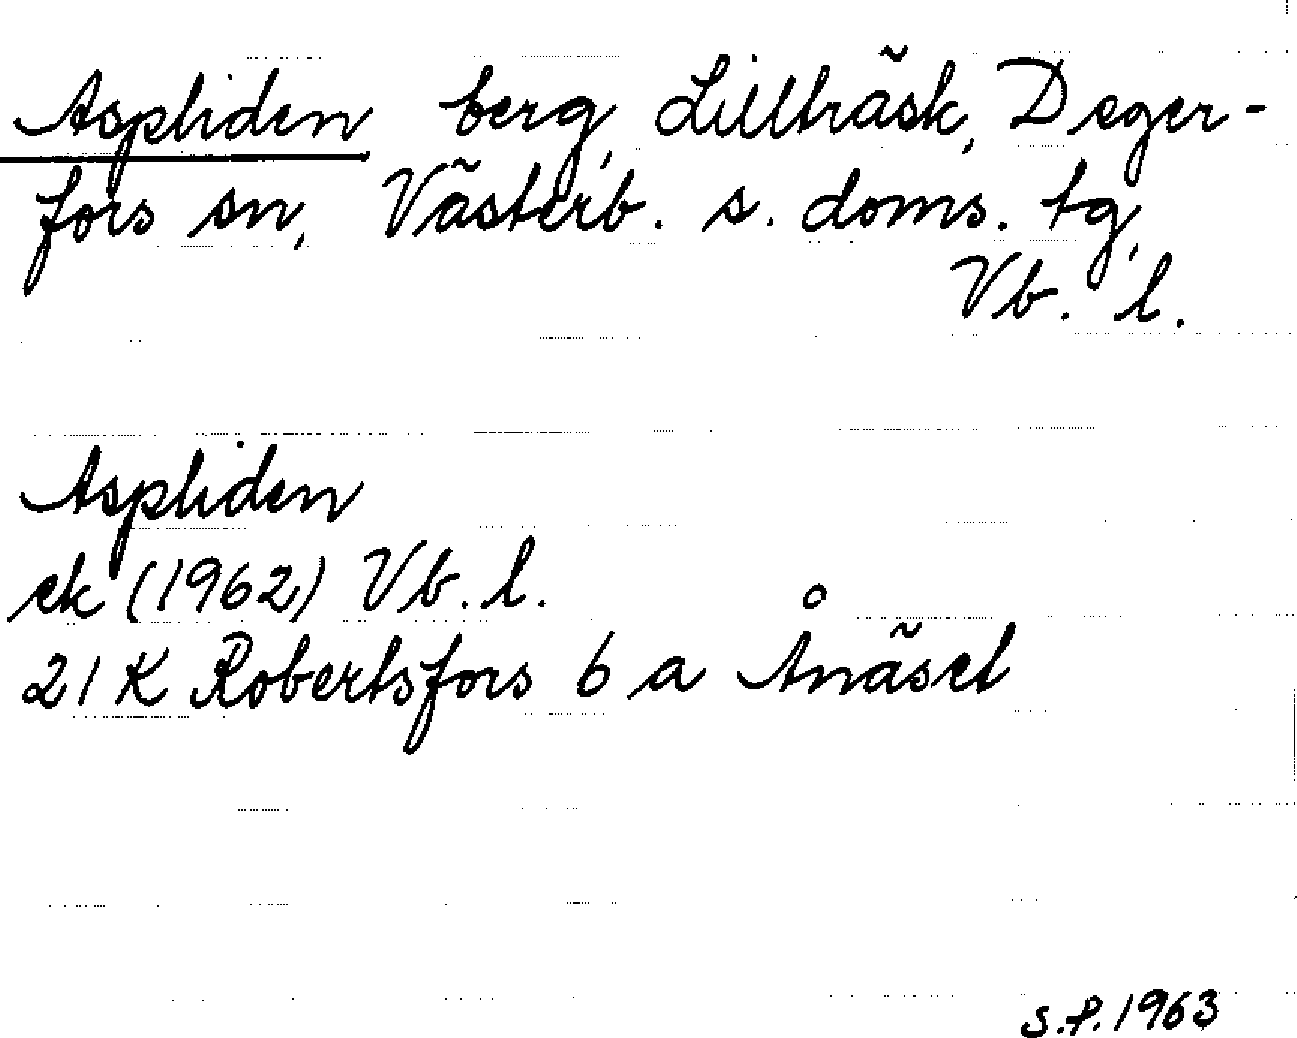 Aspliden berg, Lillträsk, Deger-
fors sn, Västerb. s. doms. tg,
Vb. l.
Aspliden
ek (1962) Vb. l.
21 K Robertsfors 6 a Ånäset
S.P. 1963